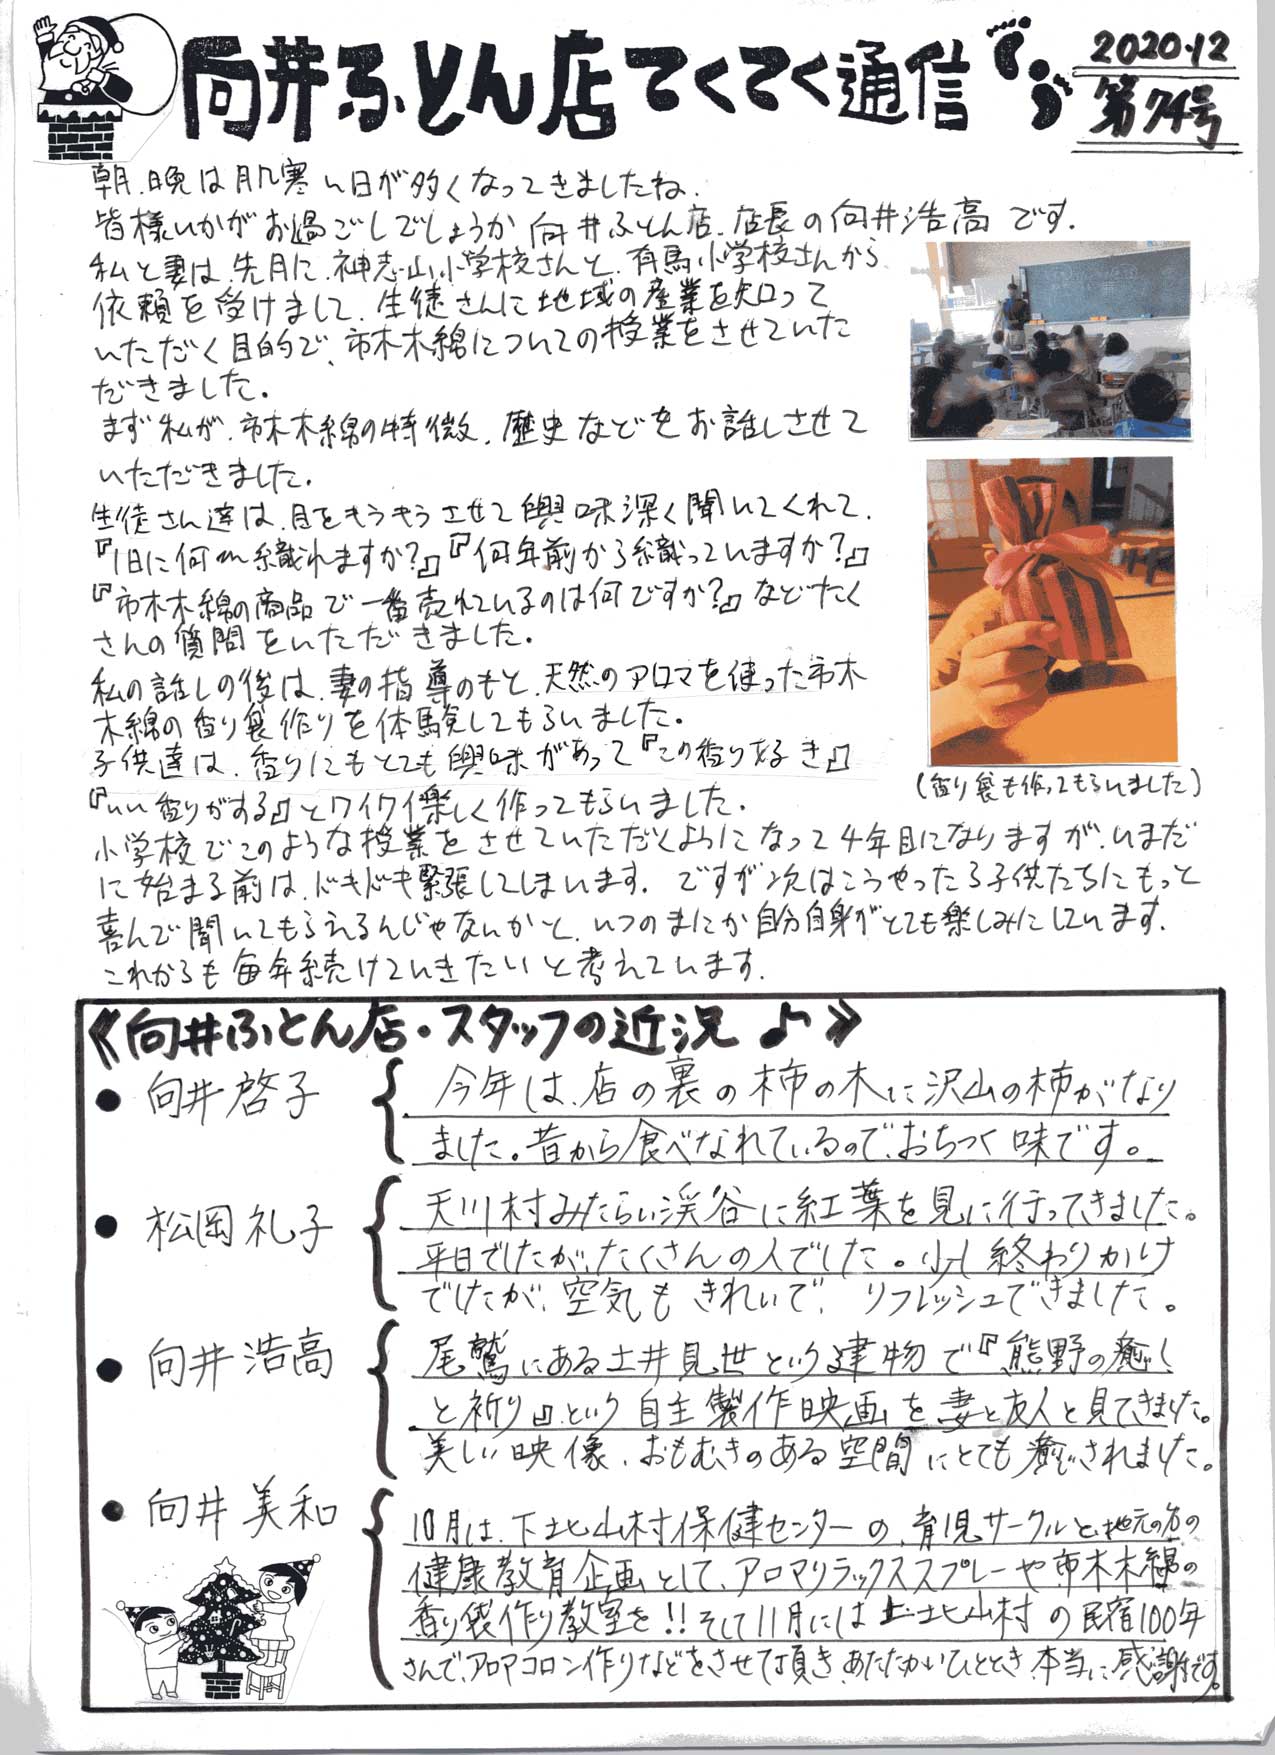 向井ふとん店てくてく通信
2020.12
第74号
朝、晩は肌寒い日が多くなってきましたね.
皆様いかがお過ごしでしょうか向井ふとん店、店長の向井浩高です.
私と妻は、先月に、神志山小学校さんと、有馬小学校さんから
依頼を受けまして、生徒さんに地域の産業を知って
いただく目的で、市木木綿についての授業をさせていた
だきました。
まず私が、市木木綿の特徴、歴史などをお話しさせて
いただきました.
生徒さん達は、目をもうもうさせて興味深く聞いてくれて、
『1日に何m織れますか?』『何年前から織っていますか?』
『市木木綿の商品で一番売れているのは何ですか?』などたく
さんの質問をいただきました。
私の話しの後は、妻の指導のもと、天然のアロマを使った市木
木綿の香り袋作りを体験してもらいました。
子供達は、香りにもとても興味があって『この香り好き』
『いい香りがする』とワイワイ楽しく作ってもらいました.
(香り袋も作ってもらいました)
小学校でこのような授業をさせていただくようになって4年目になりますが、いまだ
に始まる前は、ドキドキ緊張してしまいます. ですが次はこうやったら子供たちにもっと
喜んで聞いてもらえるんじゃないかと、いつのまにか自分自身がとても楽しみにしています.
これからも毎年続けていきたいと考えています.
《向井ふとん店・スタッフの近況♪》
● 向井啓子
今年は、店の裏の柿の木に沢山の柿がなり
ました。昔から食べなれているので、おちつく味です。
● 松岡礼子
天川村みたらい渓谷に紅葉を見に行ってきました。
平日でしたが、たくさんの人でした。少し終わりかけ
でしたが、空気もきれいで、リフレッシュできました。
● 向井浩高
尾鷲にある土井見世という建物で『熊野の癒し
と祈り』という自主製作映画を妻と友人と見てきました。
美しい映像、おもむきのある空間にとても癒されました。
● 向井美和
10月は、下北山村保健センターの、育児サークルと、地元の方の
健康教育企画として、アロマリラックススプレーや、市木木綿の
香り袋作り教室を!!そして11月には上北山村の民宿100年
さんで、アロマコロン作りなどをさせて頂き、あたたかいひととき、本当に感謝です。